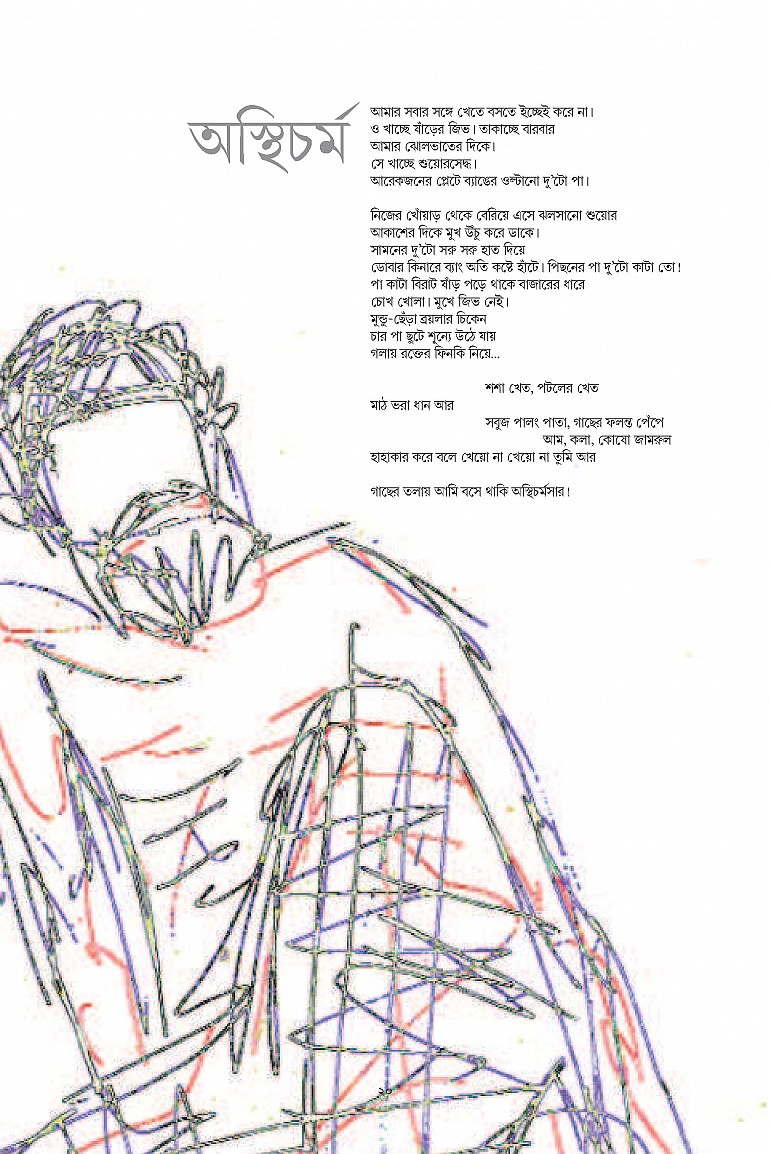 অস্থিচর্ম
আমার সবার সঙ্গে খেতে বসতে ইচ্ছেই করে না।
ও খাচ্ছে ষাঁড়ের জিভ। তাকাচ্ছে বারবার
আমার ঝোলভাতের দিকে।
সে খাচ্ছে শুয়োরসেদ্ধ।
আরেকজনের প্লেটে ব্যাঙের ওল্টানো দু’টো পা।
নিজের খোঁয়াড় থেকে বেরিয়ে এসে ঝলসানো শুয়োর
আকাশের দিকে মুখ উঁচু করে ডাকে।
সামনের দু’টো সরু সরু হাত দিয়ে
ডোবার কিনারে ব্যাং অতি কষ্টে হাঁটে। পিছনের পা দু’টো কাটা তো!
পা কাটা বিরাট ষাঁড় পড়ে থাকে বাজারের ধারে
চোখ খোলা। মুখে জিভ নেই।
মুন্ডু-ছেঁড়া ব্রয়লার চিকেন
চার পা ছুটে শূন্যে উঠে যায়
গলায় রক্তের ফিনকি নিয়ে...
শশা খেত, পটলের খেত
মাঠ ভরা ধান আর
সবুজ পালং পাতা, গাছের ফলন্ত পেঁপে
আম, কলা, কোষো জামরুল
হাহাকার করে বলে খেয়ো না খেয়ো না তুমি আর
গাছের তলায় আমি বসে থাকি অস্থিচর্মসার!
২০